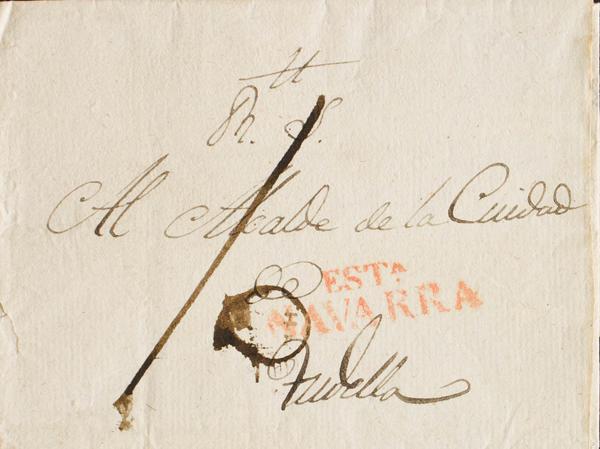 R. S.
Al Alcalde de la Cuidad
de
ESTA
NAVARRA
Tudella